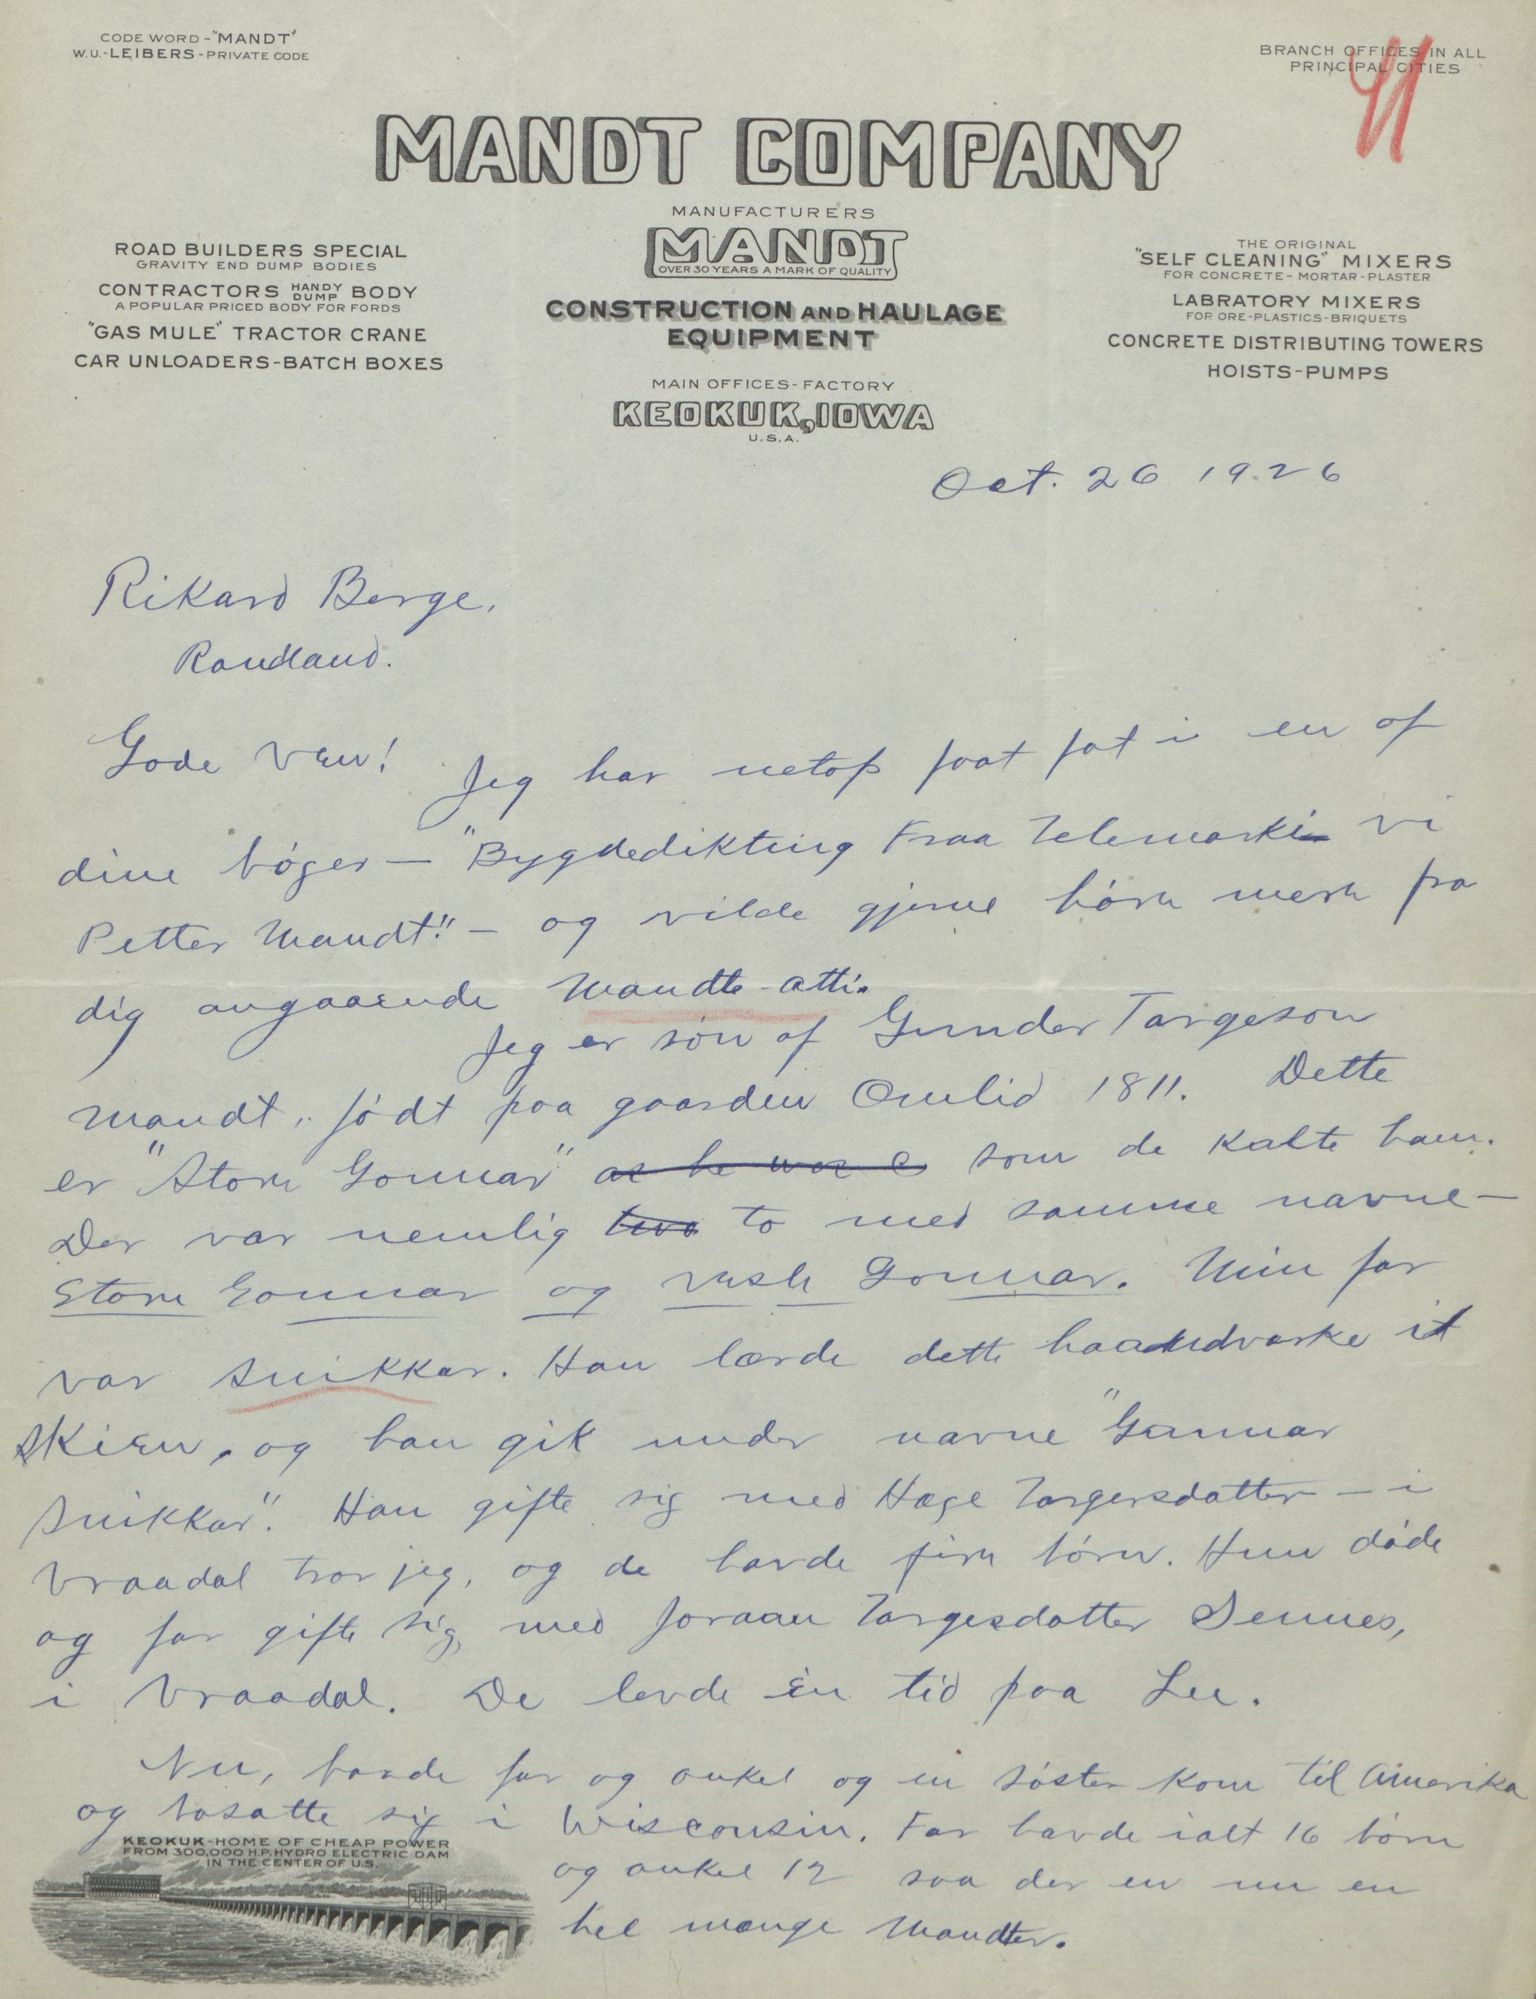 CODE WORD - "MANDT"
W.U. - LEIBERS - PRIVATE CODE
BRANCH OFFICES IN ALL
PRINCIPAL CITIES
MANDT COMPANY
MANUFACTURERS
MANDT
OVER 30 YEARS A MARK OF QUALITY
CONSTRUCTION AND HAULAGE
EQUIPMENT
MAIN OFFICES - FACTORY
KEOKUK, IOWA
U.S.A.
ROAD BUILDERS SPECIAL
GRAVITY END DUMP BODIES
CONTRACTORS HANDY DUMP BODY
A POPULAR PRICED BODY FOR FORDS
"GAS MULE" TRACTOR CRANE
CAR UNLOADERS - BATCH BOXES
THE ORIGINAL
"SELF CLEANING" MIXERS
FOR CONCRETE - MORTAR - PLASTER
LABRATORY MIXERS
FOR ORE - PLASTICS - BRIQUETS
CONCRETE DISTRIBUTING TOWERS
HOISTS - PUMPS
Oct. 26 1926
Rikard Berge,
Raudland.
Gode Ven! Jeg har netop faat fat i en af
dine bøger — "Bygdedikting Fraa Telemarki vi
Petter Mandt" — og vilde gjerne høre mere fra
dig angaaende Mandte-ætti.
Jeg er søn af Gunder Targeson
Mandt, født paa gaarden Omlid 1811. Dette
er "Store Gonnar" as he was c som de kalte ham.
Der var nemlig two to med samme navne —
Store Gonnar og Vesle Gonnar. Min far
var snikkar. Han lærde dette haandværke i
Skien, og han gik under navne "Gunnar
Snikkar". Han gifte sig med Hæge Torgersdatter — i
Vraadal tror jeg, og de havde fire børn. Hun døde
og far gifte sig med Joraan Torgesdatter Sennes,
i Vraadal. De levde én tid paa Lee.
Nu, baade far og onkel og en søster kom til Amerika
og bosatte sig i Wisconsin. Far havde ialt 16 børn
og onkel 12 saa der er nu en
hel mænge Mandter.
KEOKUK - HOME OF CHEAP POWER
FROM 300,000 H.P. HYDRO ELECTRIC DAM
IN THE CENTER OF U.S.